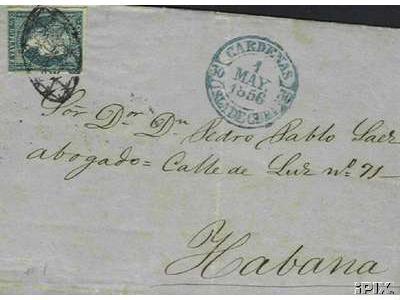 CARDENAS
30 1 30
MAY.
1856
ISLA DE CUBA
Sór Dor Dn Pedro Pablo Saez
abogado = Calle de Luz no. 71-
Habana
iPIX